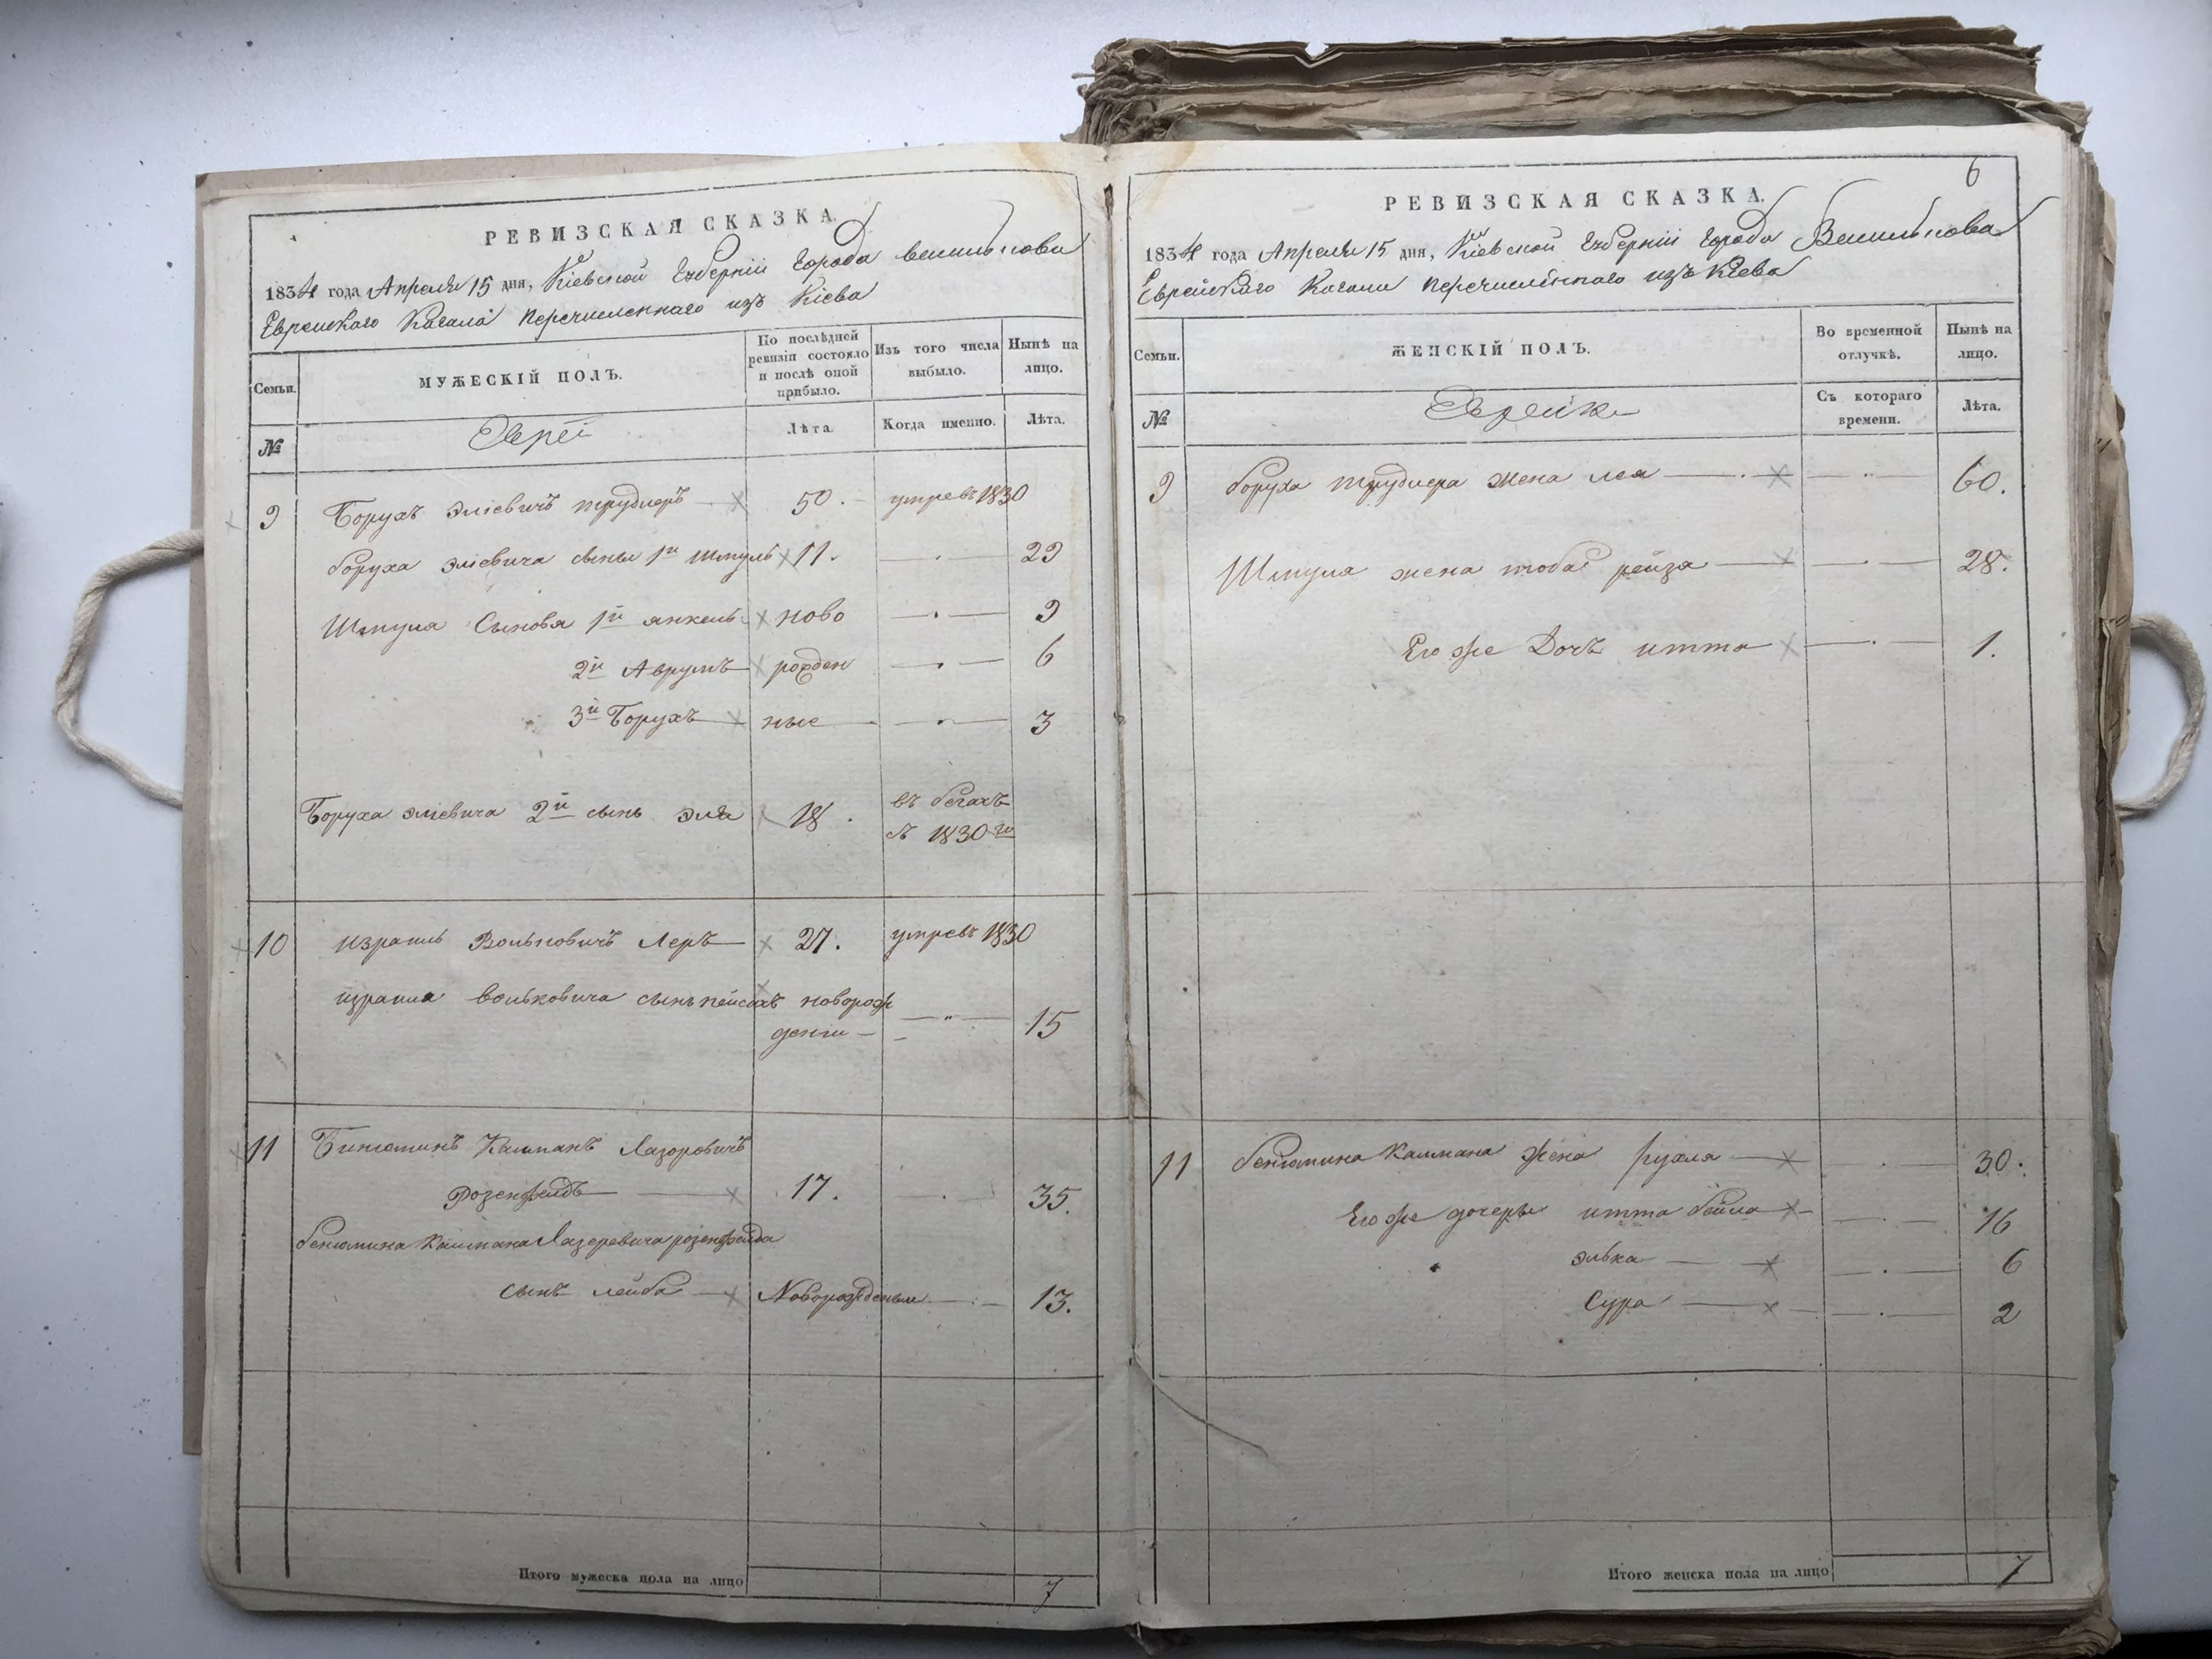 РЕВИЗСКАЯ СКАЗКА.
1834 года Апреля 15 дня, Кіевской Губерніи Города Василькова
Еврейскаго Кагала перечисленнаго изъ Кіева
Семьи.
МУЖЕСКІЙ ПОЛЪ.
По послѣдней ревизіи состояло и послѣ оной прибыло.
Изъ того числа выбыло.
Нынѣ на лицо.
№
Евреи
Лѣта.
Когда именно.
Лѣта.
9 Борухъ Эліевичъ трудлеръ 50. умре въ 1830
боруха эліевича сыны 1й Шмуль 11. 29
Шмуля Сыновя 1й янкель ново 9
2й Аврумъ рожден 6
3й Борухъ ные 3
Боруха эліевича 2й сынъ Эля 18. въ бегахъ
съ 1830го
10 израиль Вольковичъ Леръ 27. умре въ 1830
израиля вольковича сынъ пейсахъ новорож
дени 15
11 Бинюминъ Калманъ Лазоровичъ
Розенфелдъ 17. 35.
бенюмина Калмана Лазеревича розенфелда
сынъ лейба Новорожденые 13.
Итого мужеска пола на лицо 7
6
РЕВИЗСКАЯ СКАЗКА.
1834 года Апреля 15 дня, Кіевской Губерніи Города Василькова
Еврейскаго Кагала перечисленнаго изъ Кіева
Семьи.
ЖЕНСКІЙ ПОЛЪ.
Во временной отлучкѣ.
Нынѣ на лицо.
№
Еврейки
Съ котораго времени.
Лѣта.
9 боруха трудлера жена лея 60.
Шмуля жена тоба рейза 28.
Его же Дочь итта 1.
11 бенюмина Калмана жена рухля 30.
Его же дочеры итта бейла 16
элька 6
Сура 2
Итого женска пола на лицо 7